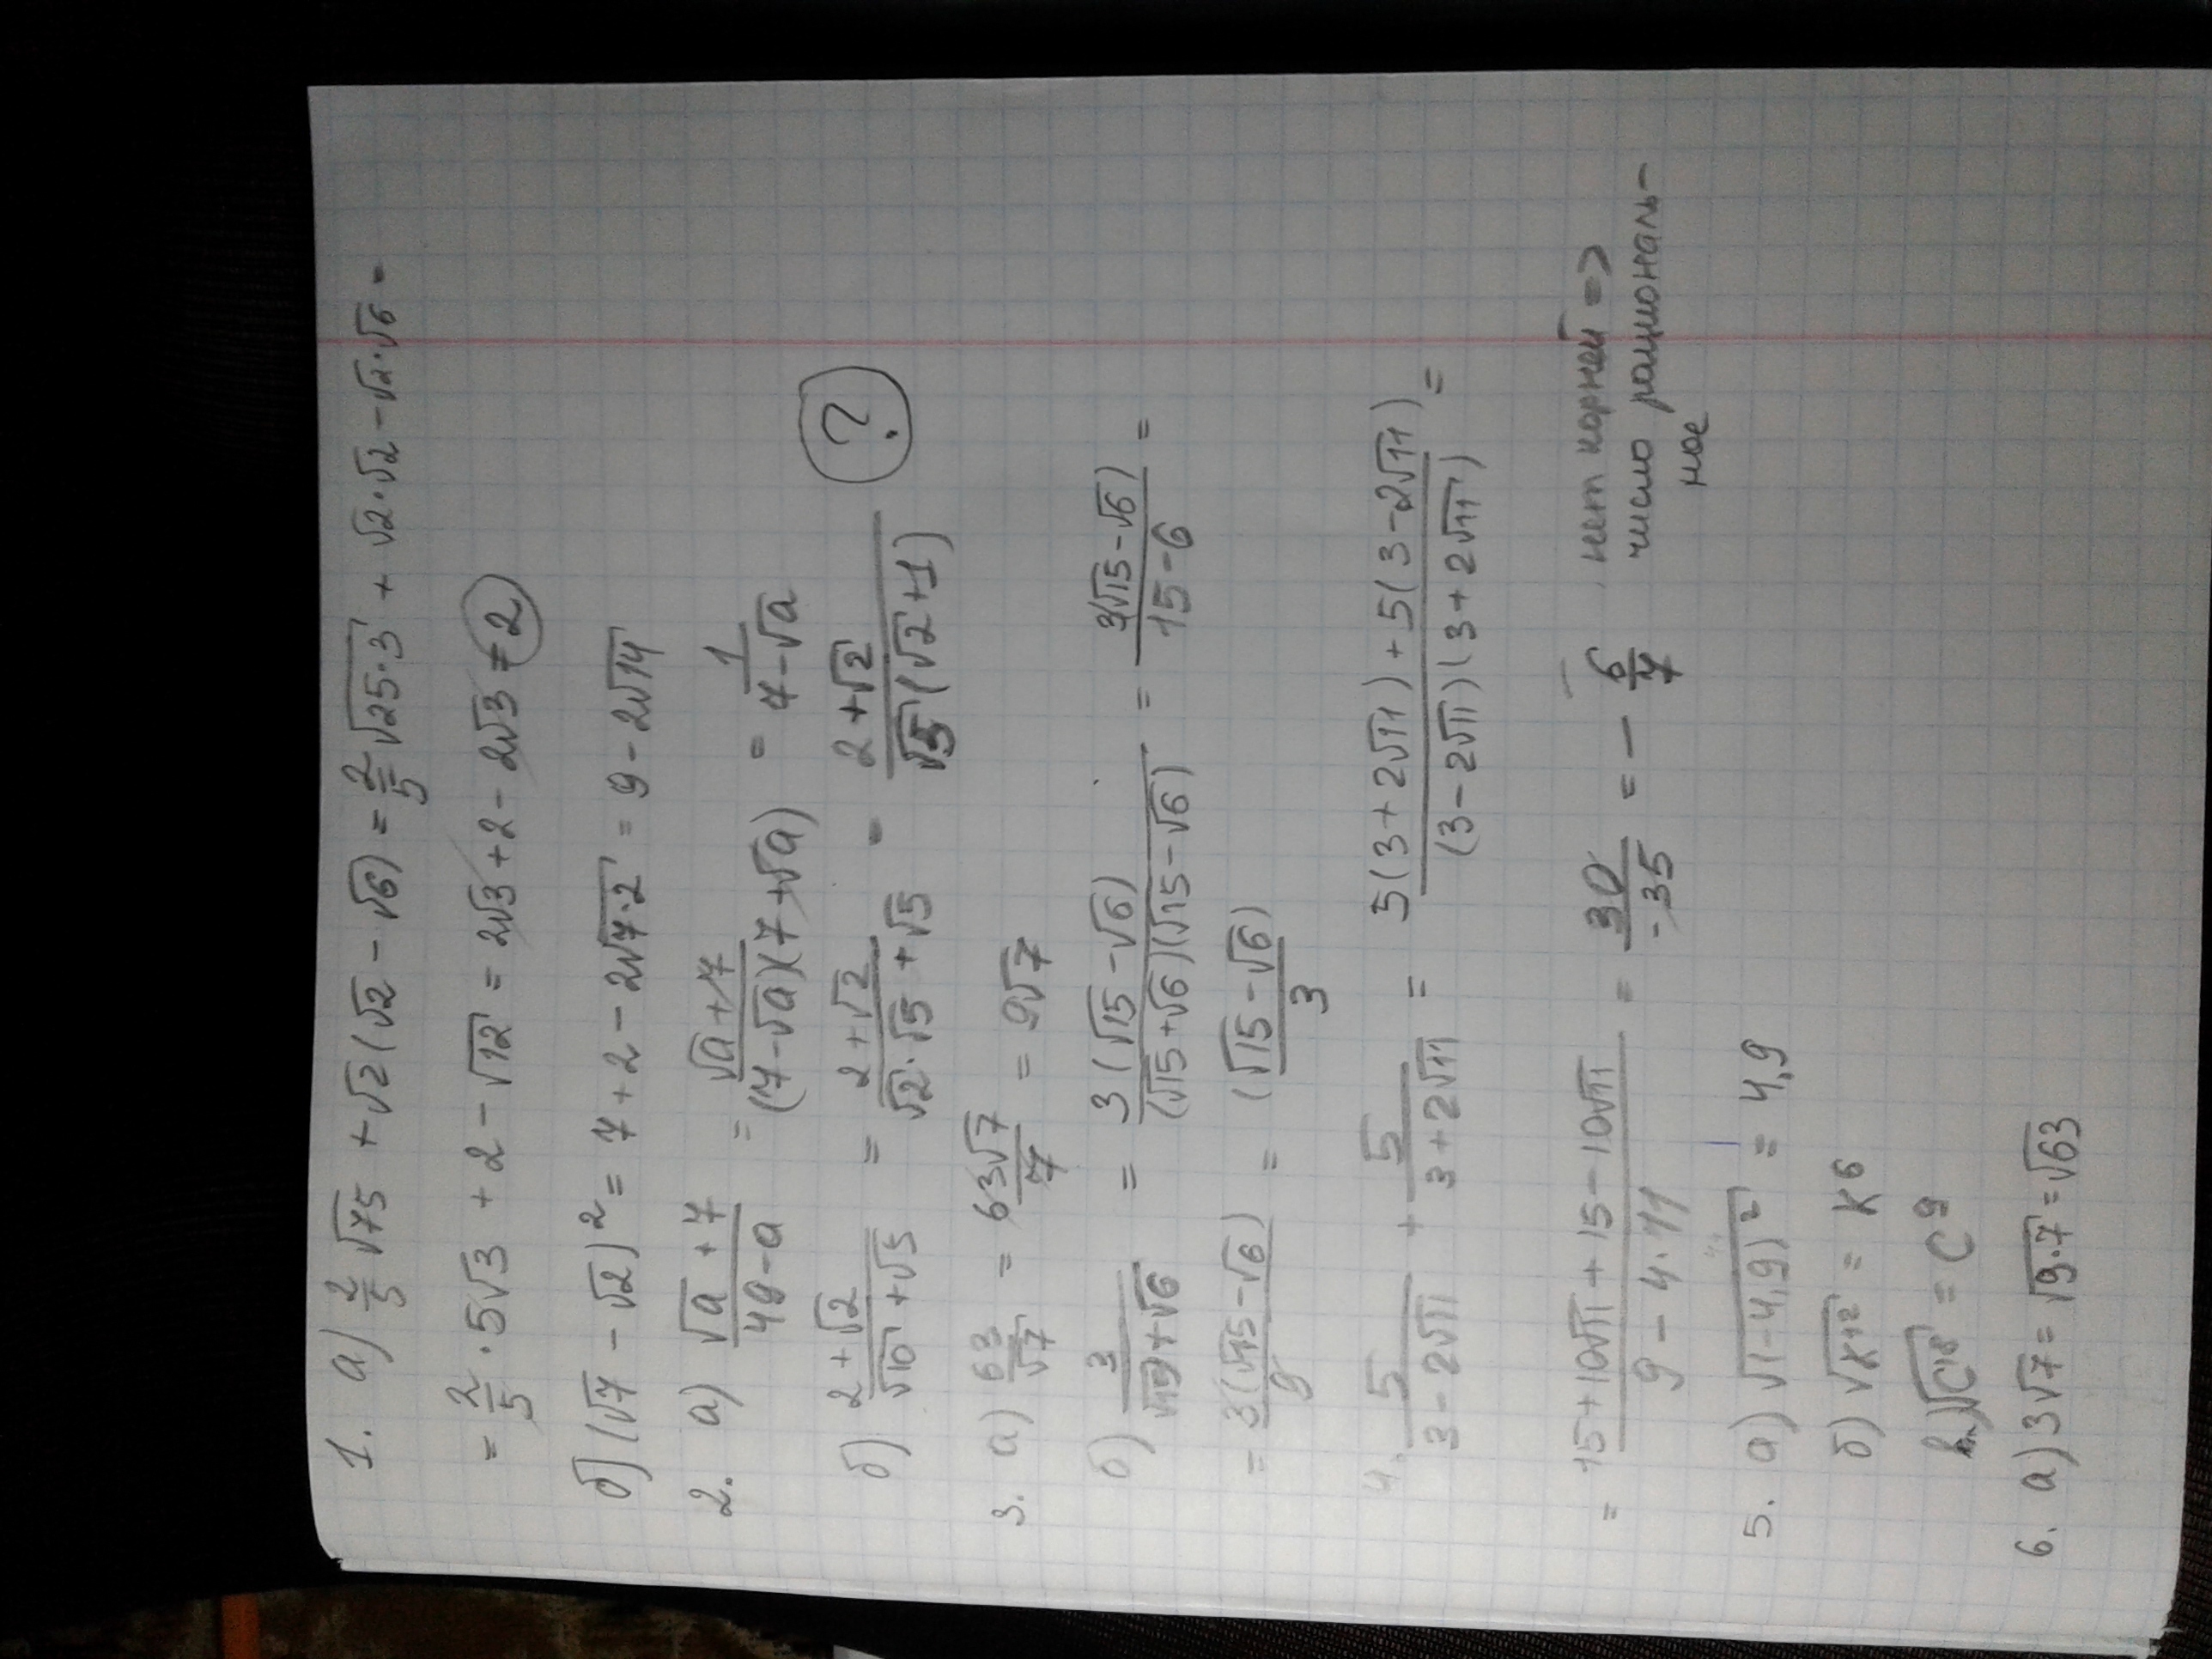 1. а) 2/5 √75 + √2(√2 - √6) = 2/5 √25·3 + √2·√2 - √2·√6 =
= 2/5 · 5√3 + 2 - √12 = 2√3 + 2 - 2√3 = 2
б) (√7 - √2)² = 7 + 2 - 2√7·2 = 9 - 2√14
2. а) (√a + 7)/(49 - a) = (√a + 7)/((7 - √a)(7 + √a)) = 1/(7 - √a)
б) (2 + √2)/(√10 + √5) = (2 + √2)/(√2·√5 + √5) = (2 + √2)/(√5(√2 + 1)) ?
3. а) 63/√7 = 63√7/7 = 9√7
б) 3/(√15 + √6) = 3(√15 - √6)/((√15 + √6)(√15 - √6)) = 3(√15 - √6)/(15 - 6) =
= 3(√15 - √6)/9 = (√15 - √6)/3
4. 5/(3 - 2√11) + 5/(3 + 2√11) = (5(3 + 2√11) + 5(3 - 2√11))/((3 - 2√11)(3 + 2√11)) =
= (15 + 10√11 + 15 - 10√11)/(9 - 4·11) = 30/-35 = - 6/7 нет корней =>
число рациональ-
ное
5. а) √(-4,9)² = 4,9
б) √к¹² = к⁶
в) √c¹⁸ = c⁹
6. а) 3√7 = √9·7 = √63